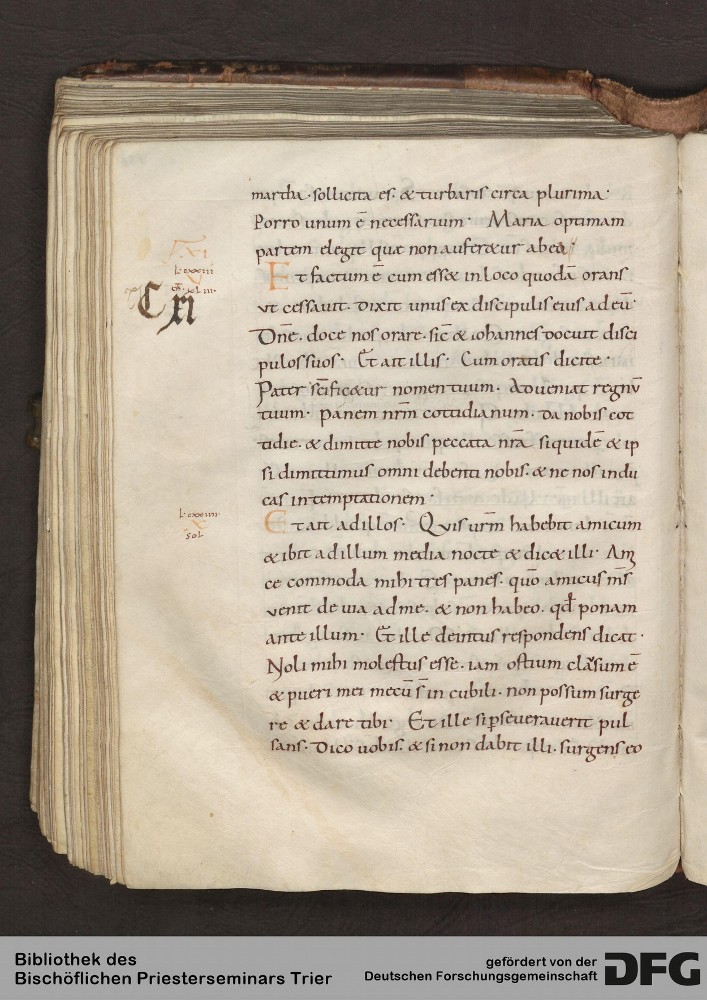 martha · sollicita es · & turbaris circa plurima ·
Porro unum ē necessarium · Maria optimam
partem elegit quae non aufer&ur abea ·
Et factum ē cum ess& inloco quodā orans
ut cessauit · dixit unus ex discipulis eius ad eū ·
Dn̄e · doce nos orare · sic̄ & iohannes docuit disci
pulos suos · Et ait illis · Cum oratis dicite ·
Pater sc̄ific&ur nomen tuum · Adueniat regnū
tuum · panem nr̄m cottidianum · da nobis cot
tidie · & dimitte nobis peccata nr̄a siquidē & ip
si dimittimus omni debenti nobis · & ne nos indu
cas in temptationem ·
Et ait ad illos · Quis ur̄m habebit amicum
& ibit ad illum media nocte & dic& illi · Am
ce commoda mihi tres panes · quō amicus m̄s
uenit de uia ad me · & non habeo · qđ ponam
ante illum · Et ille deintus respondens dicat ·
Noli mihi molestus esse · iam ostium clausum ē
& pueri mei mecū s̄ in cubili · non possum surge
re & dare tibi · Et ille si ꝑseuerauerit pul
sans · Dico uobis · & si non dabit illi · surgens eo
Cxi
Bibliothek des
Bischöflichen Priesterseminars Trier
gefördert von der
Deutschen Forschungsgemeinschaft
DFG